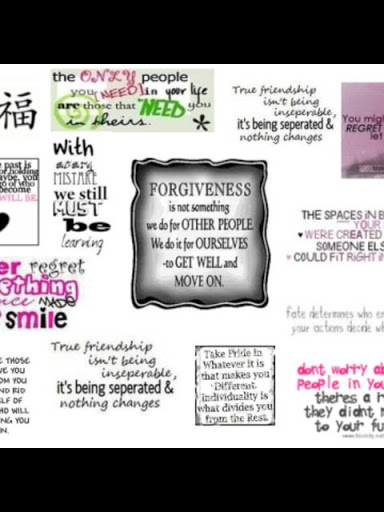 福
the ONLY people
you [NEED] in your life
are those that NEED you
in theirs.
*
True friendship
isn't being
inseperable,
it's being seperated &
nothing changes
You
REGRET
let
past is
WILL BE.
With
every
MISTAKE
we still
MUST
be
learning
FORGIVENESS
is not something
we do for OTHER PEOPLE
We do it for OURSELVES
-to GET WELL and
MOVE ON.
THE SPACES IN B
YOUR
♥ WERE CREATED
SOMEONE EL
♥ COULD FIT RIGHT IN
er regret
thing
nce MADE
smile
fate determines who en
your actions decide wh
True friendship
isn't being
inseperable,
it's being seperated &
nothing changes
Take Pride in
Whatever it is
that makes you
Different.
individuality is
what divides you
from the Rest.
E THOSE
VE YOU
OM YOU
ND RID
ELF OF
HO WILL
NG YOU
N.
dont worry ab
People in yo
theres a r
they didnt m
to your fu